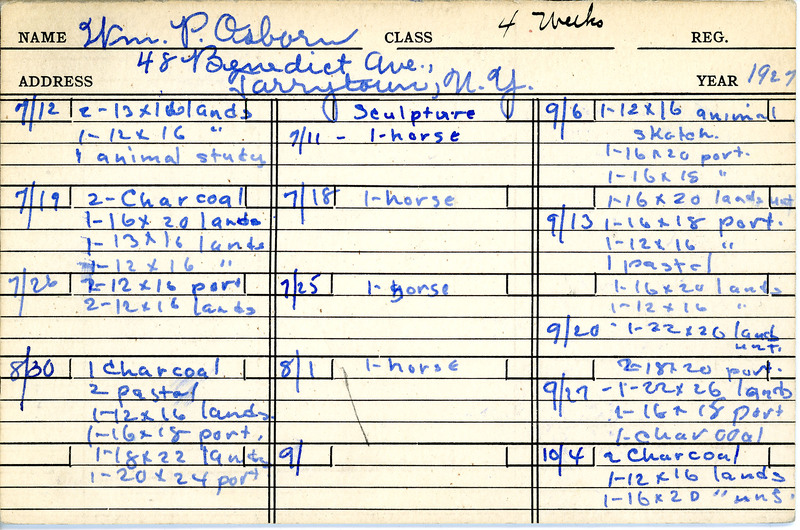 NAME Wm. P. Osborn CLASS 4 Weeks REG.
48 Benedict Ave.,
ADDRESS Tarrytown, N.Y. YEAR 1927
7/12 2-13x16 lands
1-12x16 "
1 animal study
7/19 2-Charcoal
1-16x20 lands
1-13x16 lands
1-12x16 "
7/26 2-12x16 port
2-12x16 lands
8/30 1 Charcoal
2 pastal
1-12x16 lands
1-16x18 port.
1-18x22 lands
1-20x24 port
Sculpture
7/11 - 1-horse
7/18 1-horse
7/25 1-horse
8/1 1-horse
9/
9/6 1-12x16 animal
skatch.
1-16x20 port.
1-16x18 "
1-16x20 lands unf
9/13 1-16x18 port.
1-12x16 "
1 pastel
1-16x20 lands
1-12x16 "
9/20 - 1-22x26 lands
unf.
2-18x20 port.
9/27 - 1-22x26 lands
1-16x18 port
1-charcoal
10/4 2 Charcoal
1-12x16 lands
1-16x20 " unf.